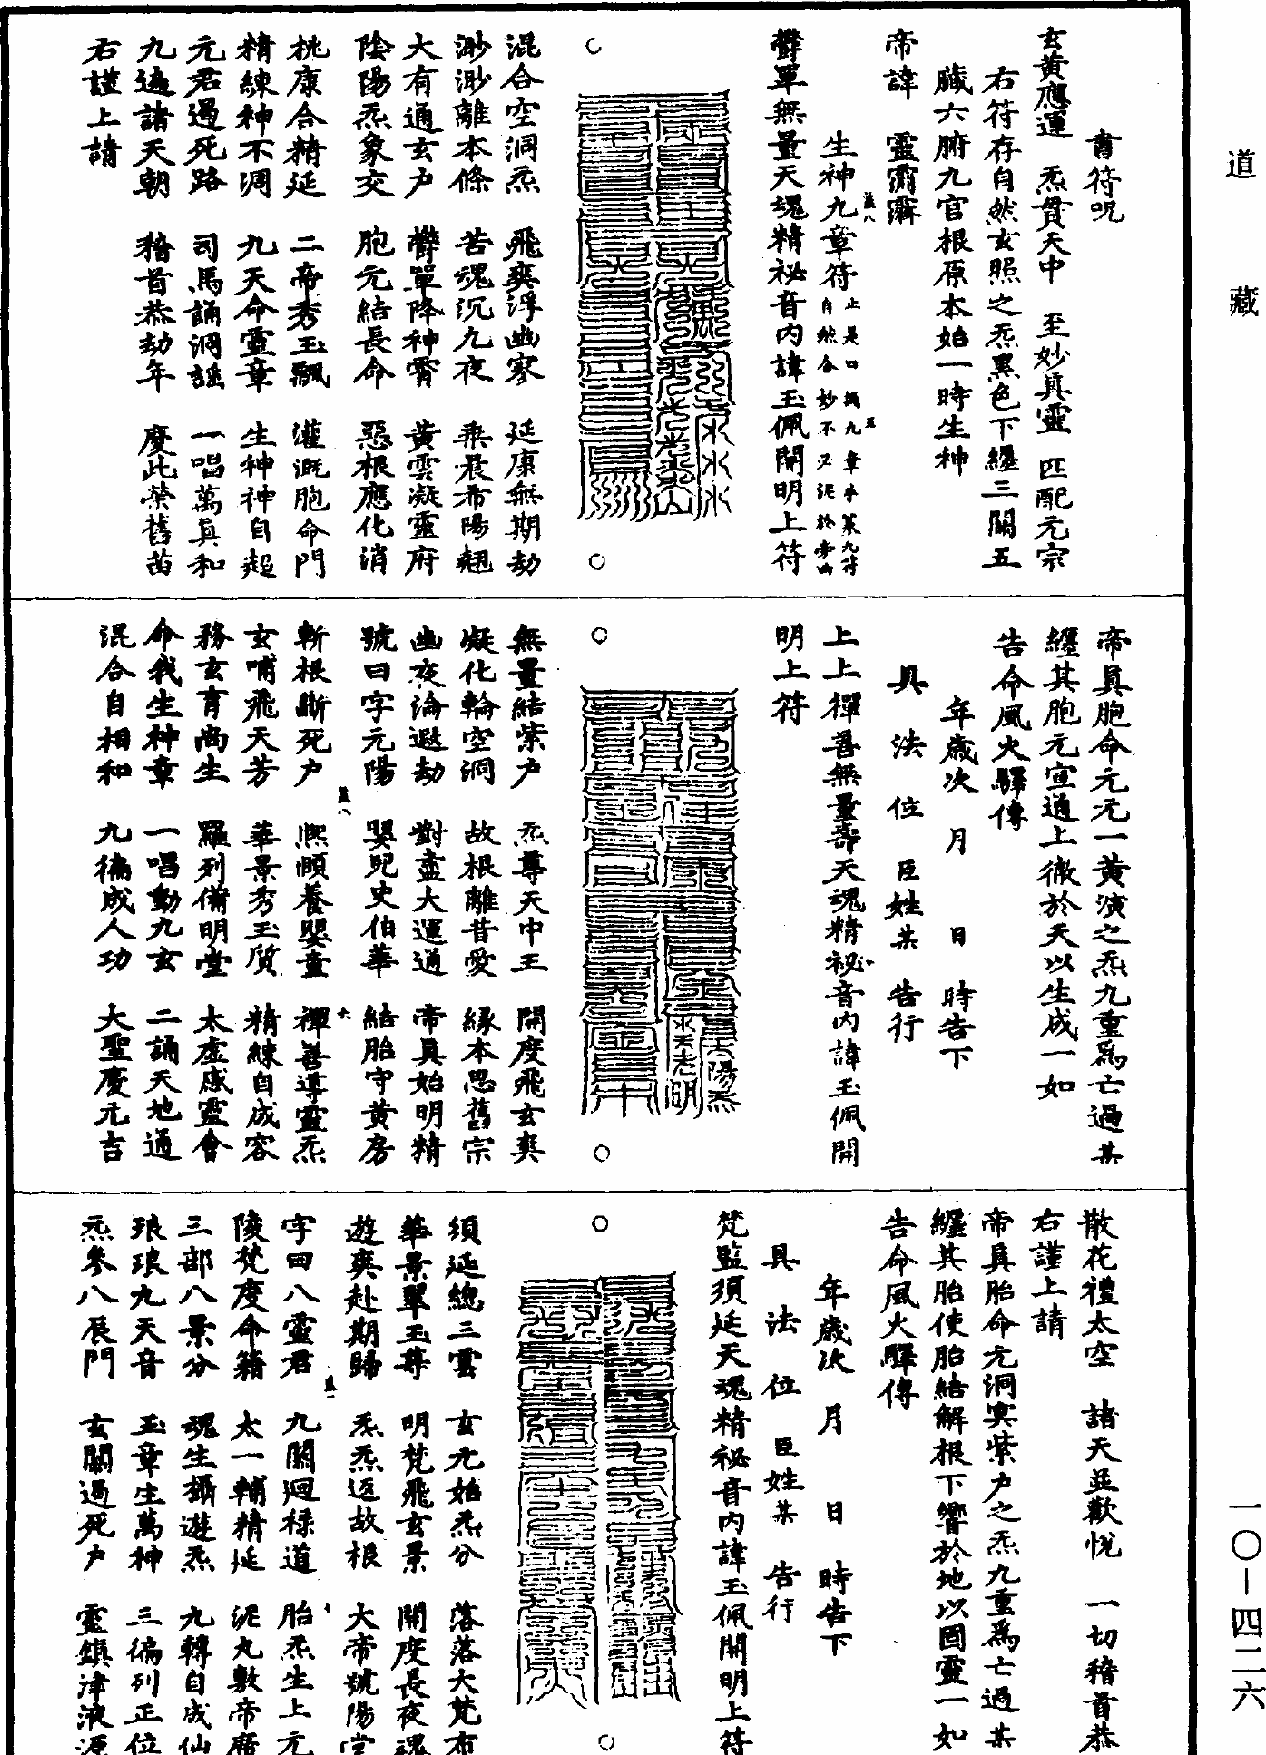 道藏
書符呪
玄黃應運 炁貫天中 至妙真靈 匹配元宗
右符存自然玄照之炁黑色下纒三關五
臟六腑九宮根原本始一時生神
帝諱 靈
生神九章符
鬱單無量天魂精祕音內諱玉佩開明上符
混合空洞炁 飛爽浮幽寥 延康無期劫
渺渺離本條 苦魂沉九夜 乘晨希陽翹
大有通玄戶 鬱單降神霄 黃雲凝靈府
陰陽炁象交 胞元結長命 惡根應化消
桃康合精延 二帝秀玉飄 灌溉胞命門
精練神不凋 九天命靈章 生神神自超
元君遏死路 司馬誦洞謠 一唱萬真和
九遍諸天朝 稽首恭劫年 慶此榮舊苗
右謹上請
帝真胞命元元一黃演之炁九重為亡過某
纒其胞元宣通上徹於天以生成一如
告命風火驛傳
年歲次 月 日 時告下
具 法 位 臣姓某 告行
上上禪善無量壽天魂精祕音內諱玉佩開
明上符
無量結紫戶 炁尊天中王 開度飛玄爽
凝化輪空洞 故根離昔愛 緣本思舊宗
幽夜淪遐劫 對盡大運通 帝真始明精
號曰字元陽 嬰兒史伯華 結胎守黃房
斬根斷死戶 熙頤養嬰童 禪善導靈炁
玄哺飛天芳 華景秀玉質 精練自成容
務玄育尚生 羅列備明堂 太虛感靈會
命我生神章 一唱動九玄 二誦天地通
混合自相和 九徧成人功 大聖慶元吉
散花禮太空 諸天並歡悅 一切稽首恭
右謹上請
帝真胎命元洞冥紫戶之炁九重為亡過某
纒其胎使胎結解根下響於地以固靈一如
告命風火驛傳
年歲次 月 日 時告下
具 法 位 臣姓某 告行
梵監須延天魂精祕音內諱玉佩開明上符
須延總三雲 玄元始炁分 落落大梵布
華景翠玉尊 明梵飛玄景 開度長夜魂
遊爽赴期歸 炁炁返故根 大帝號陽堂
字曰八靈君 九關迴祿道 胎炁生上元
陵梵度命籍 太一輔精延 泥丸敷帝席
三部八景分 魂生攝遊炁 九轉自成仙
琅琅九天音 玉章生萬神 三徧列正位
炁參八辰門 玄關遏死戶 靈鎮津液源
一〇—四二六